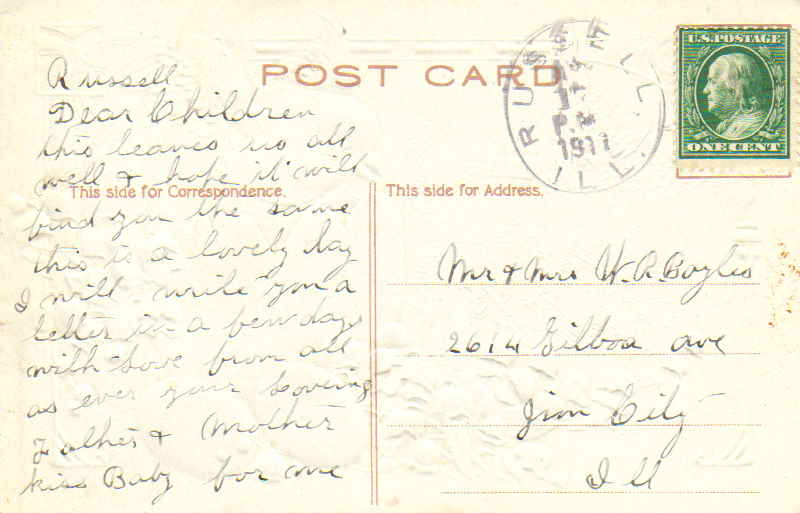 Russell
POST CARD
RUSSELL ILL.
P.M.
1911
U.S. POSTAGE
ONE CENT
Dear Children
this leaves us all
well & hope it will
This side for Correspondence.
find you the same
this is a lovely day
I will write you a
letter in a few days
with Love from all
as ever your Loving
Father & Mother
kiss Baby for me
This side for Address.
Mr & Mrs W. R. Boyles
2614 Gilboa ave
Zion City
Ill